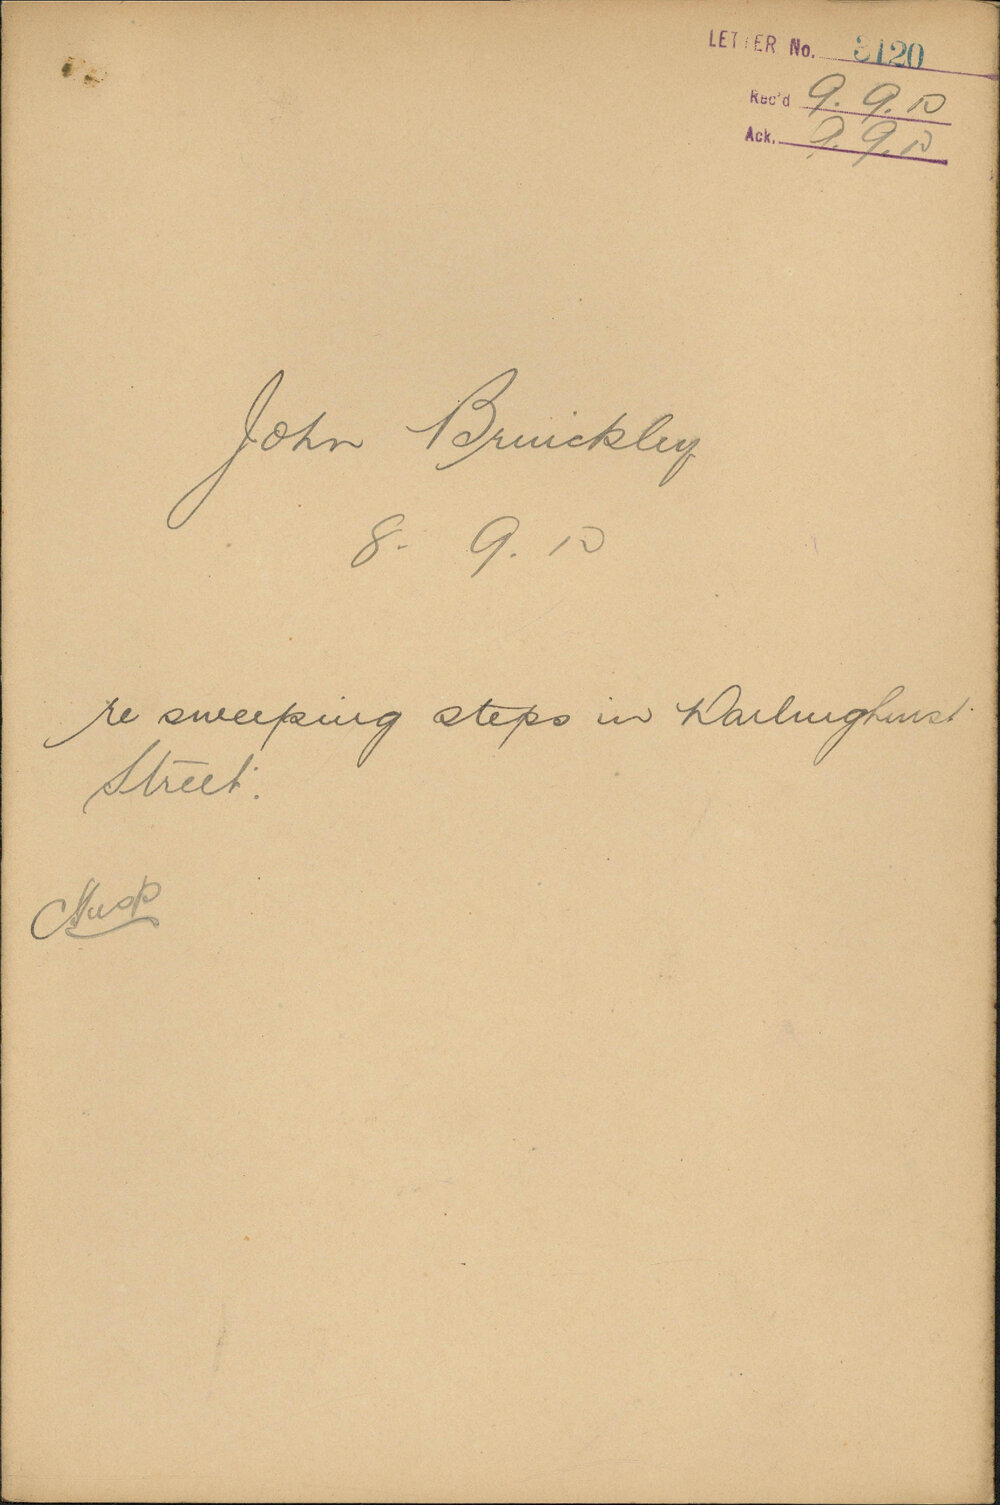 LETTER No. 3120
Rec'd 9. 9. 10
Ack. 9. 9. 10
John Brinickley
8. 9. 10
re sweeping steps in Darlinghurst
Street.